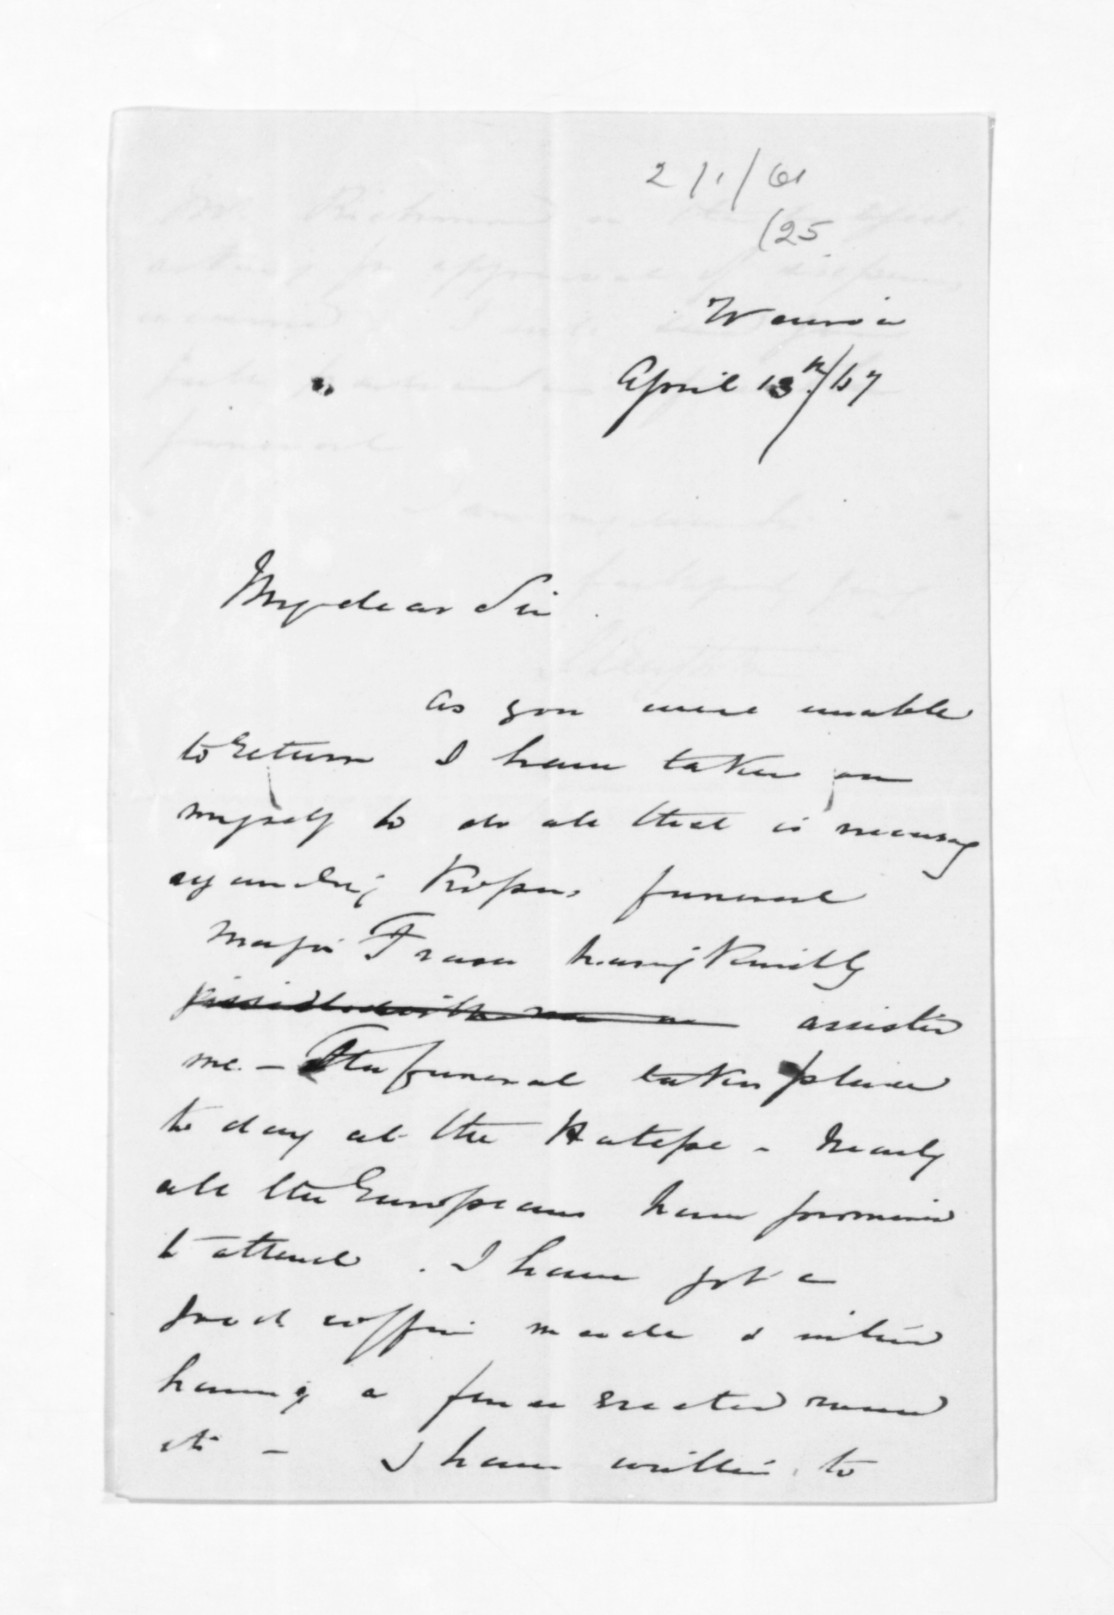 2/1/61
/25
Wairoa
April 13th/67
My dear Sir
As you were unable
to return I have taken on
myself to do all that is necessary
regarding Kopu's funeral
Major Fraser having kindly
assisted
me. – The funeral takes place
to day at the Hatepe – Nearly
all the Europeans have promised
to attend. I have got a
good coffin made & intend
having a fence erected round
it – I have written to